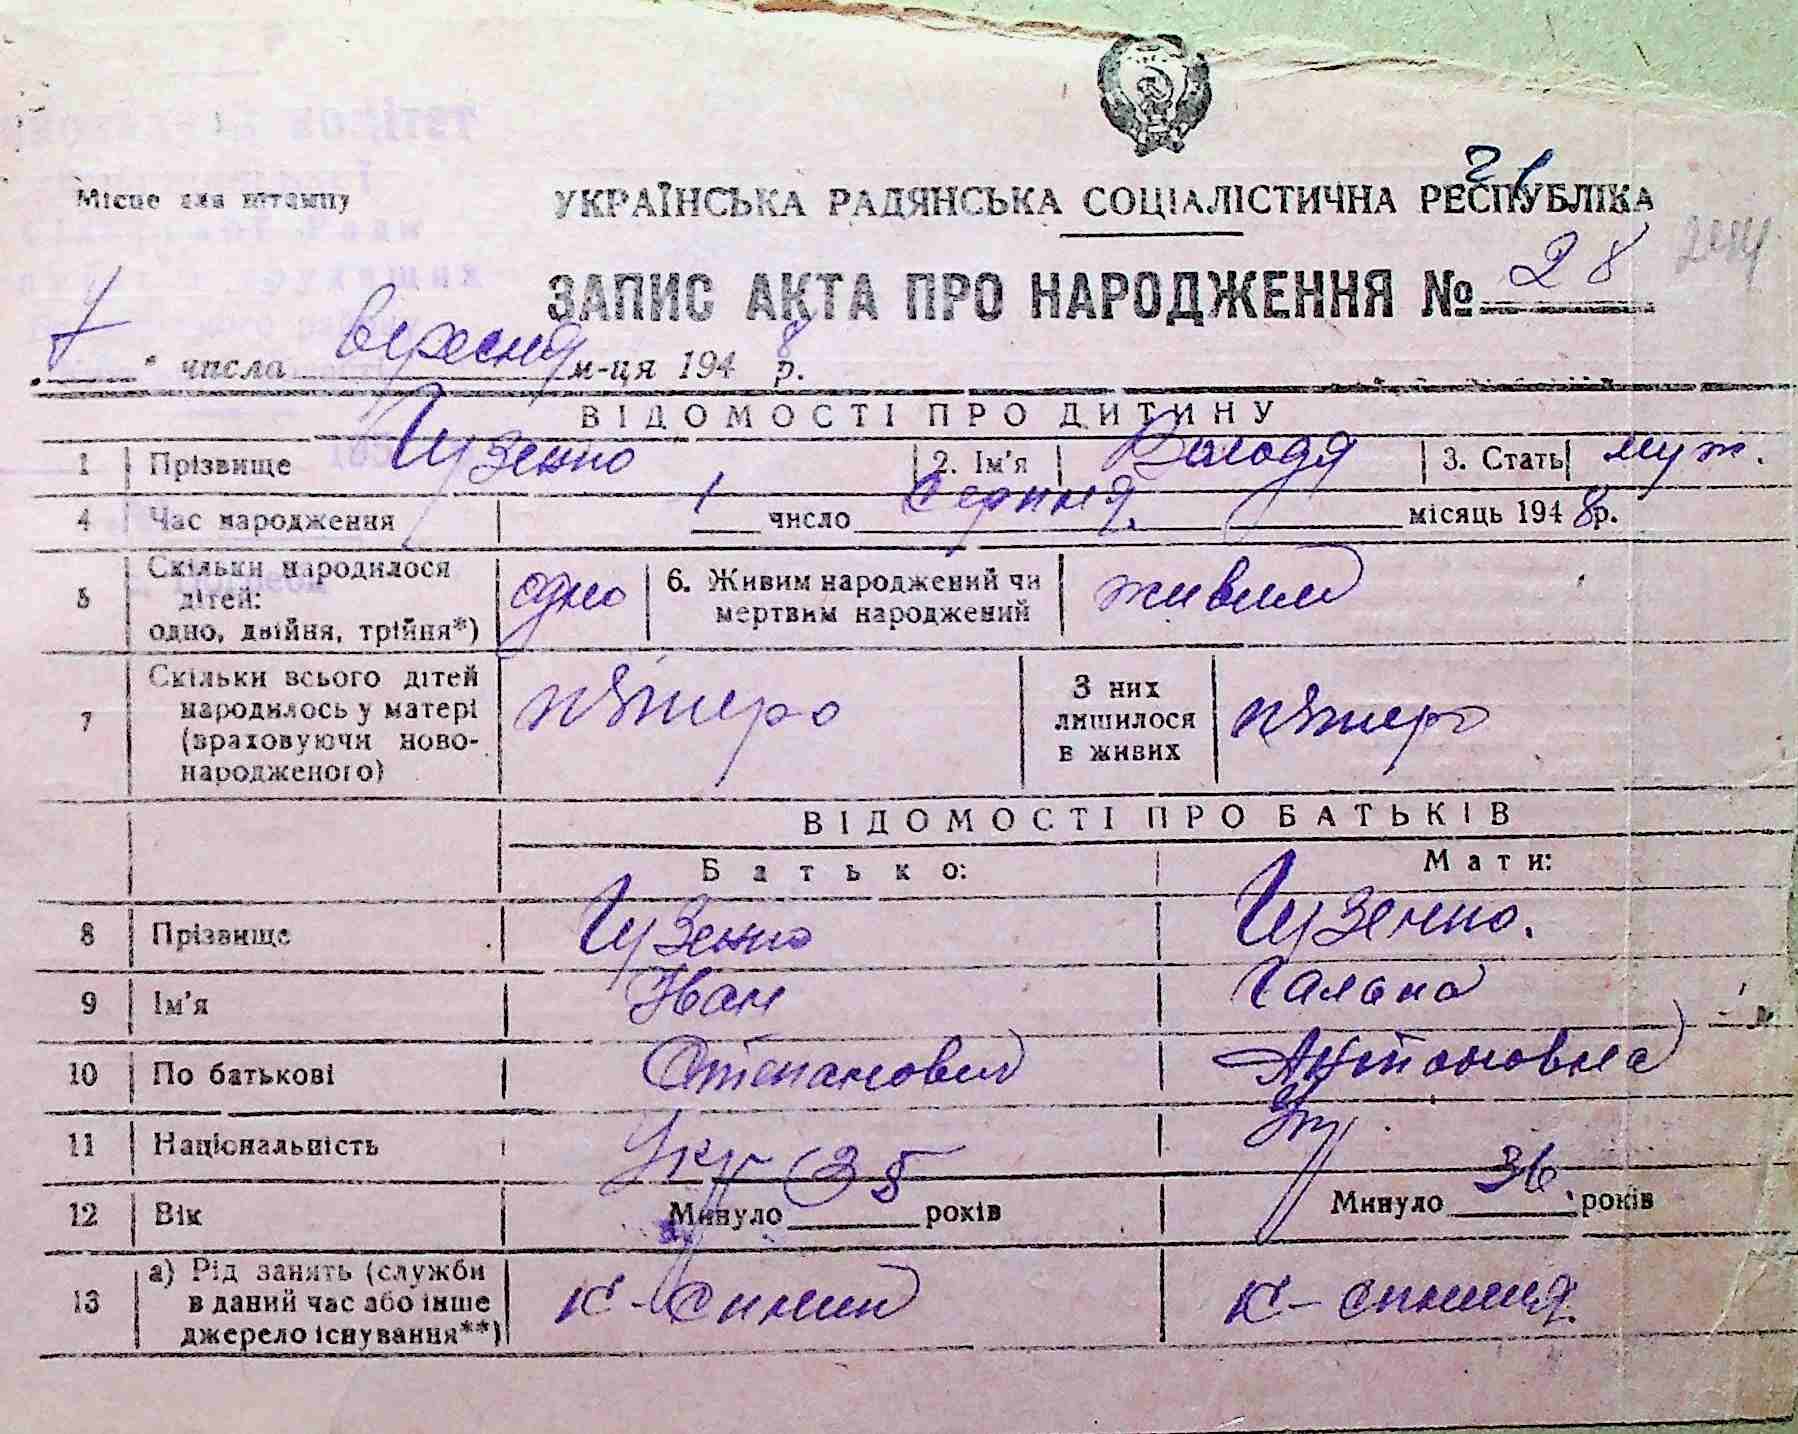 21
Місце для штампу
УКРАЇНСЬКА РАДЯНСЬКА СОЦІАЛІСТИЧНА РЕСПУБЛІКА
244
ЗАПИС АКТА ПРО НАРОДЖЕННЯ № 28
7 числа вересня м-ця 1948 р.
ВІДОМОСТІ ПРО ДИТИНУ
1 Прізвище Гузенко 2. Ім'я Володя 3. Стать муж.
4 Час народження 1 число серпня. місяць 1948 р.
5 Скільки народилося дітей: одно, двійня, трійня*) одно 6. Живим народжений чи мертвим народжений живим
7 Скільки всього дітей народилось у матері (враховуючи новонародженого) пятеро З них лишилося в живих пятеро
ВІДОМОСТІ ПРО БАТЬКІВ
Батько: Мати:
8 Прізвище Гузенко Гузенко.
9 Ім'я Іван Галина
10 По батькові Степанович Антоновна
11 Національність Укр Укр
12 Вік Минуло 35 років Минуло 36 років
13 а) Рід занять (служби в даний час або інше джерело існування**) к-спник к-спниця.